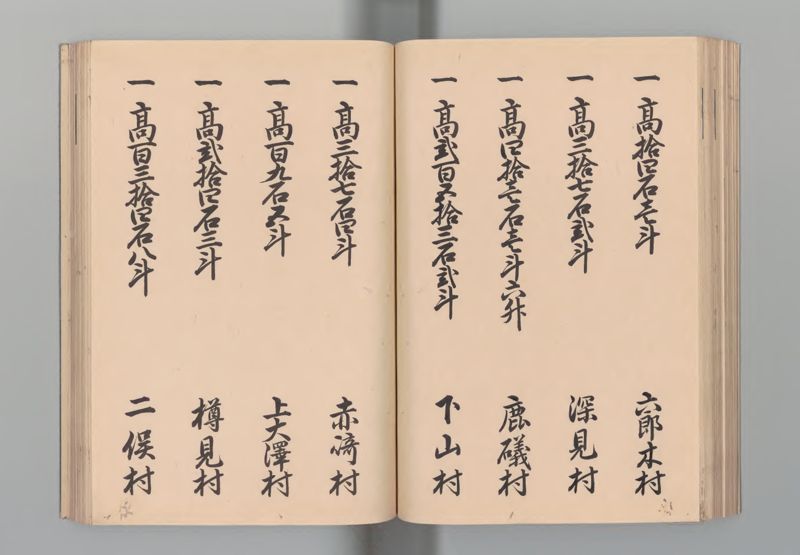 一 高拾四石壱斗 六郎木村
一 高三拾七石弐斗 深見村
一 高四拾壱石壱斗六升 鹿礒村
一 高弐百五拾三石弐斗 下山村
一 高三拾七石四斗 赤﨑村
一 高百九石五斗 上大澤村
一 高弐拾四石三斗 樽見村
一 高百三拾四石八斗 二俣村